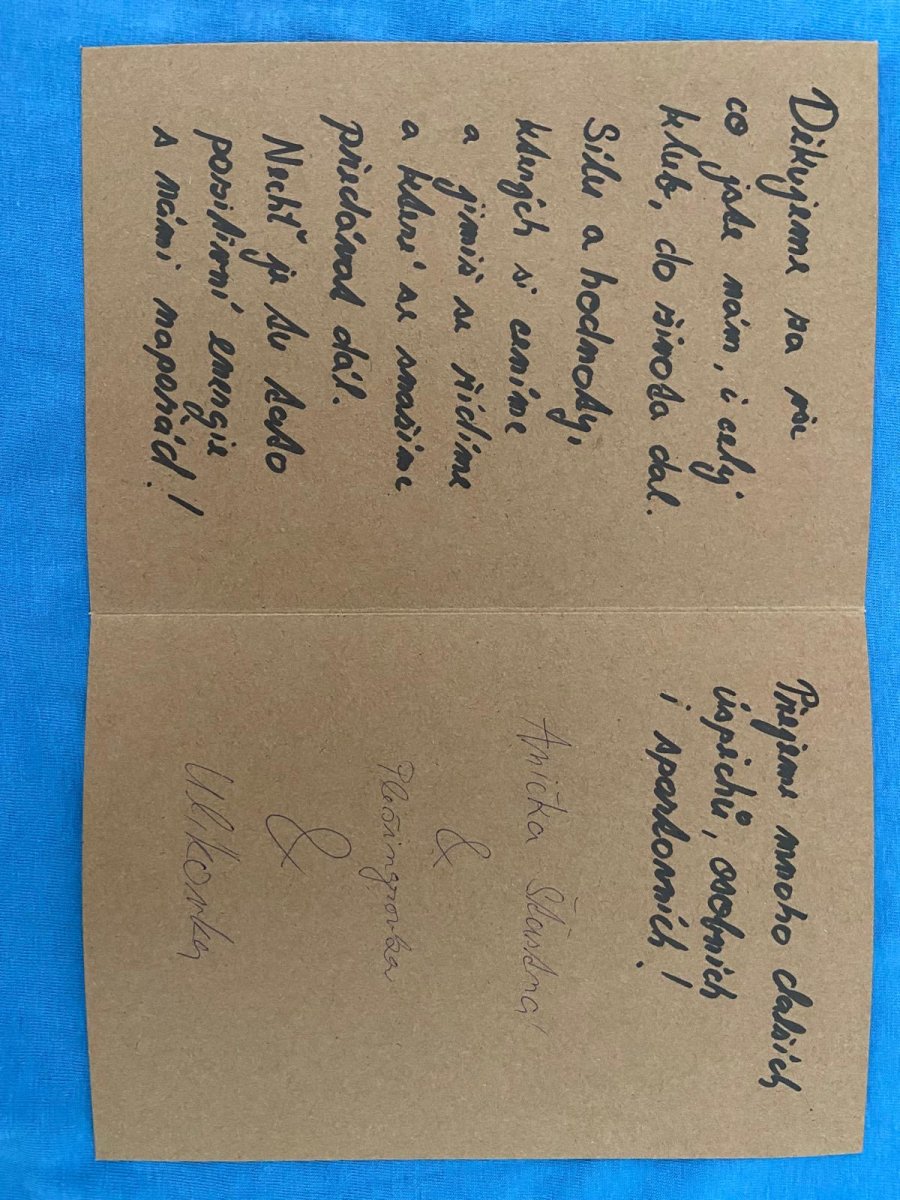 Děkujeme za vše
co jste nám, i celý
klub, do života dal.
Sílu a hodnoty,
kterých si ceníme
a jimiž se řídíme
a které se snažíme
předávat dál.
Nechť je tu tato
positivní energie
s námi napořád!
Přejeme mnoho dalších
úspěchů, osobních
i sportovních!
Anička Šťastná
&
&
Ulikovka